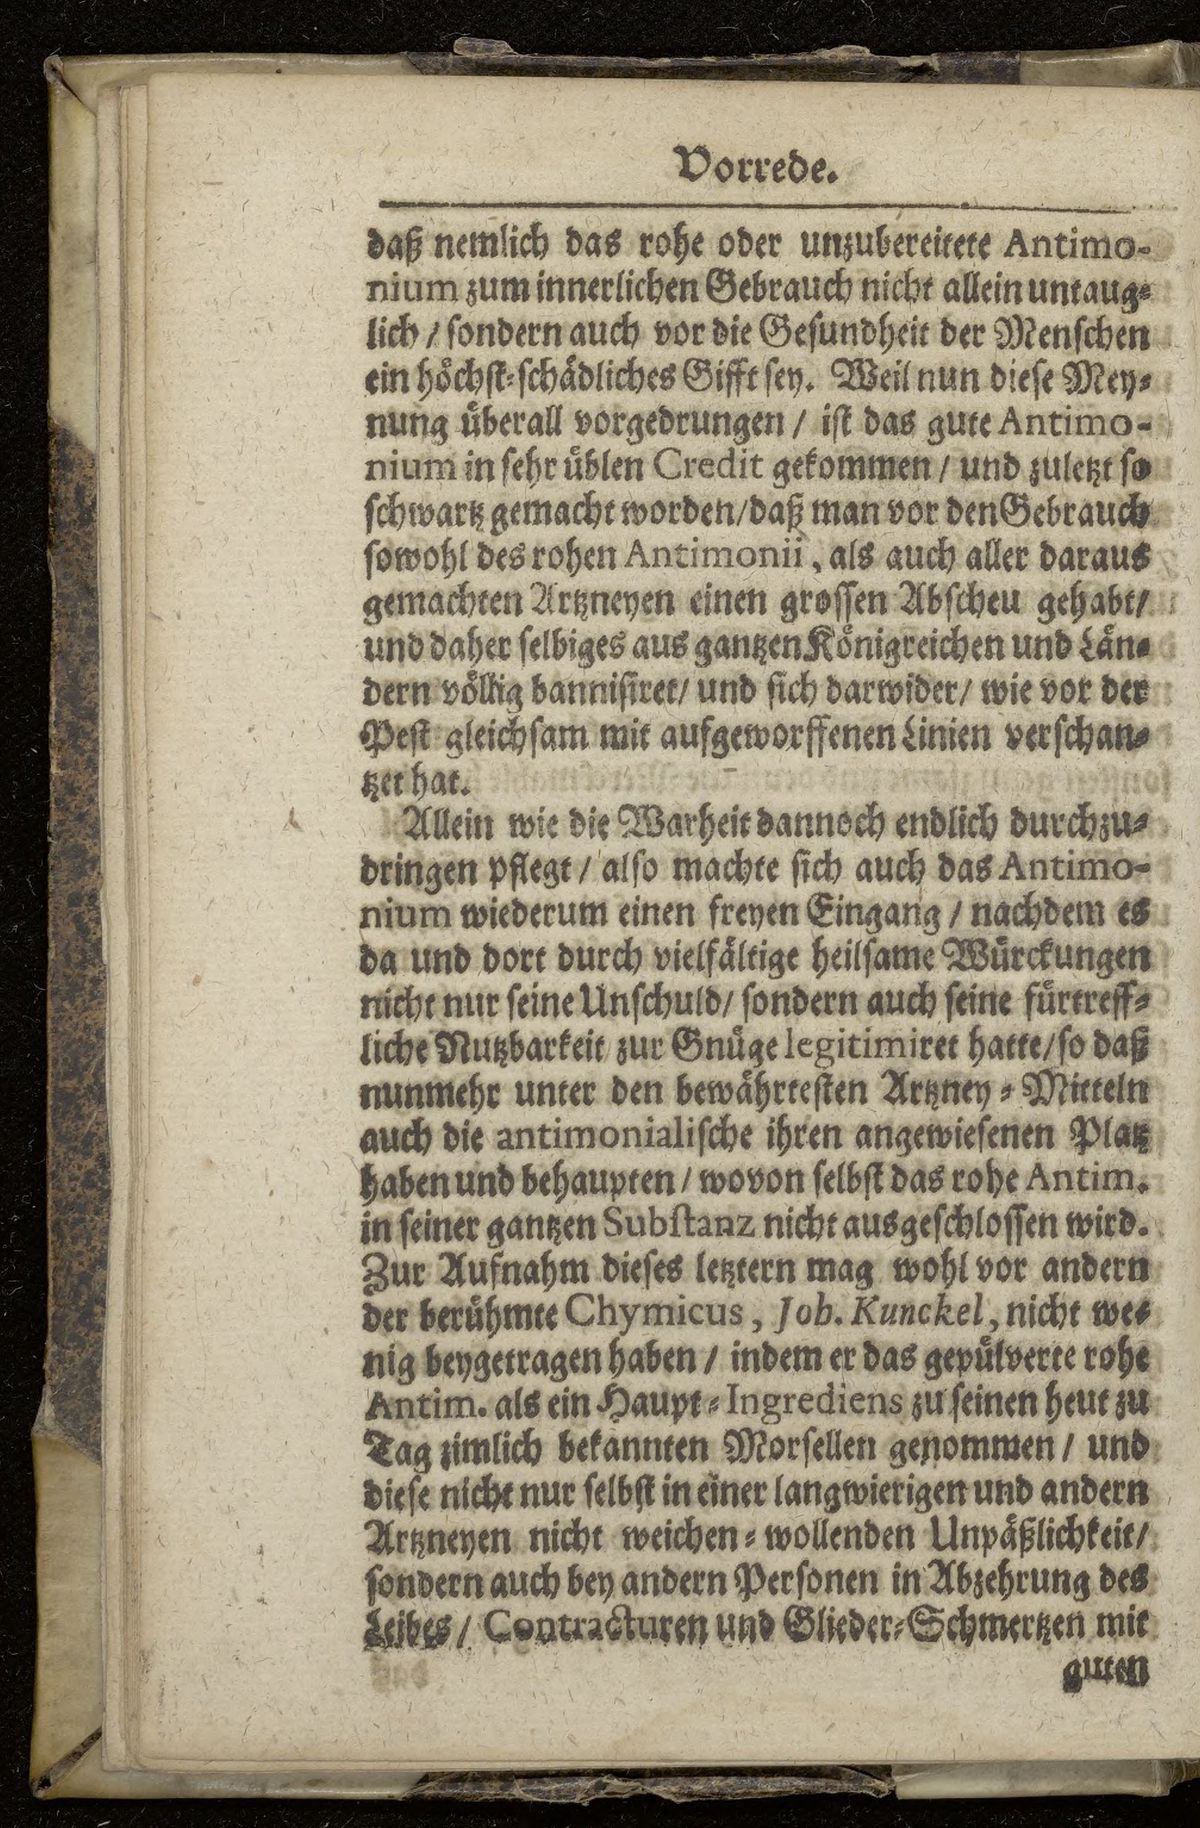 Vorrede.
daß nemlich das rohe oder unzubereitete Antimo-
nium zum innerlichen Gebrauch nicht allein untaug-
lich / sondern auch vor die Gesundheit der Menschen
ein höchst-schädliches Gifft sey. Weil nun diese Mey-
nung überall vorgedrungen / ist das gute Antimo-
nium in sehr üblen Credit gekommen / und zuletzt so
schwartz gemacht worden/daß man vor den Gebrauch
sowohl des rohen Antimonii, als auch aller daraus
gemachten Artzneyen einen grossen Abscheu gehabt/
und daher selbiges aus gantzen Königreichen und Län-
dern völlig bannisiret/ und sich darwider/ wie vor der
Pest gleichsam mit aufgeworffenen Linien verschan-
tzet hat.
Allein wie die Warheit dannoch endlich durchzu-
dringen pflegt / also machte sich auch das Antimo-
nium wiederum einen freyen Eingang / nachdem es
da und dort durch vielfältige heilsame Würckungen
nicht nur seine Unschuld/ sondern auch seine fürtreff-
liche Nutzbarkeit zur Gnüge legitimiret hatte/so daß
nunmehr unter den bewährtesten Artzney-Mitteln
auch die antimonialische ihren angewiesenen Platz
haben und behaupten / wovon selbst das rohe Antim.
in seiner gantzen Substanz nicht ausgeschlossen wird.
Zur Aufnahm dieses letztern mag wohl vor andern
der berühmte Chymicus, Joh. Kunckel, nicht we-
nig beygetragen haben / indem er das gepülverte rohe
Antim. als ein Haupt-Ingrediens zu seinen heut zu
Tag zimlich bekannten Morsellen genommen / und
diese nicht nur selbst in einer langwierigen und andern
Artzneyen nicht weichen-wollenden Unpäßlichkeit/
sondern auch bey andern Personen in Abzehrung des
Leibes / Contracturen und Glieder-Schmertzen mit
guten